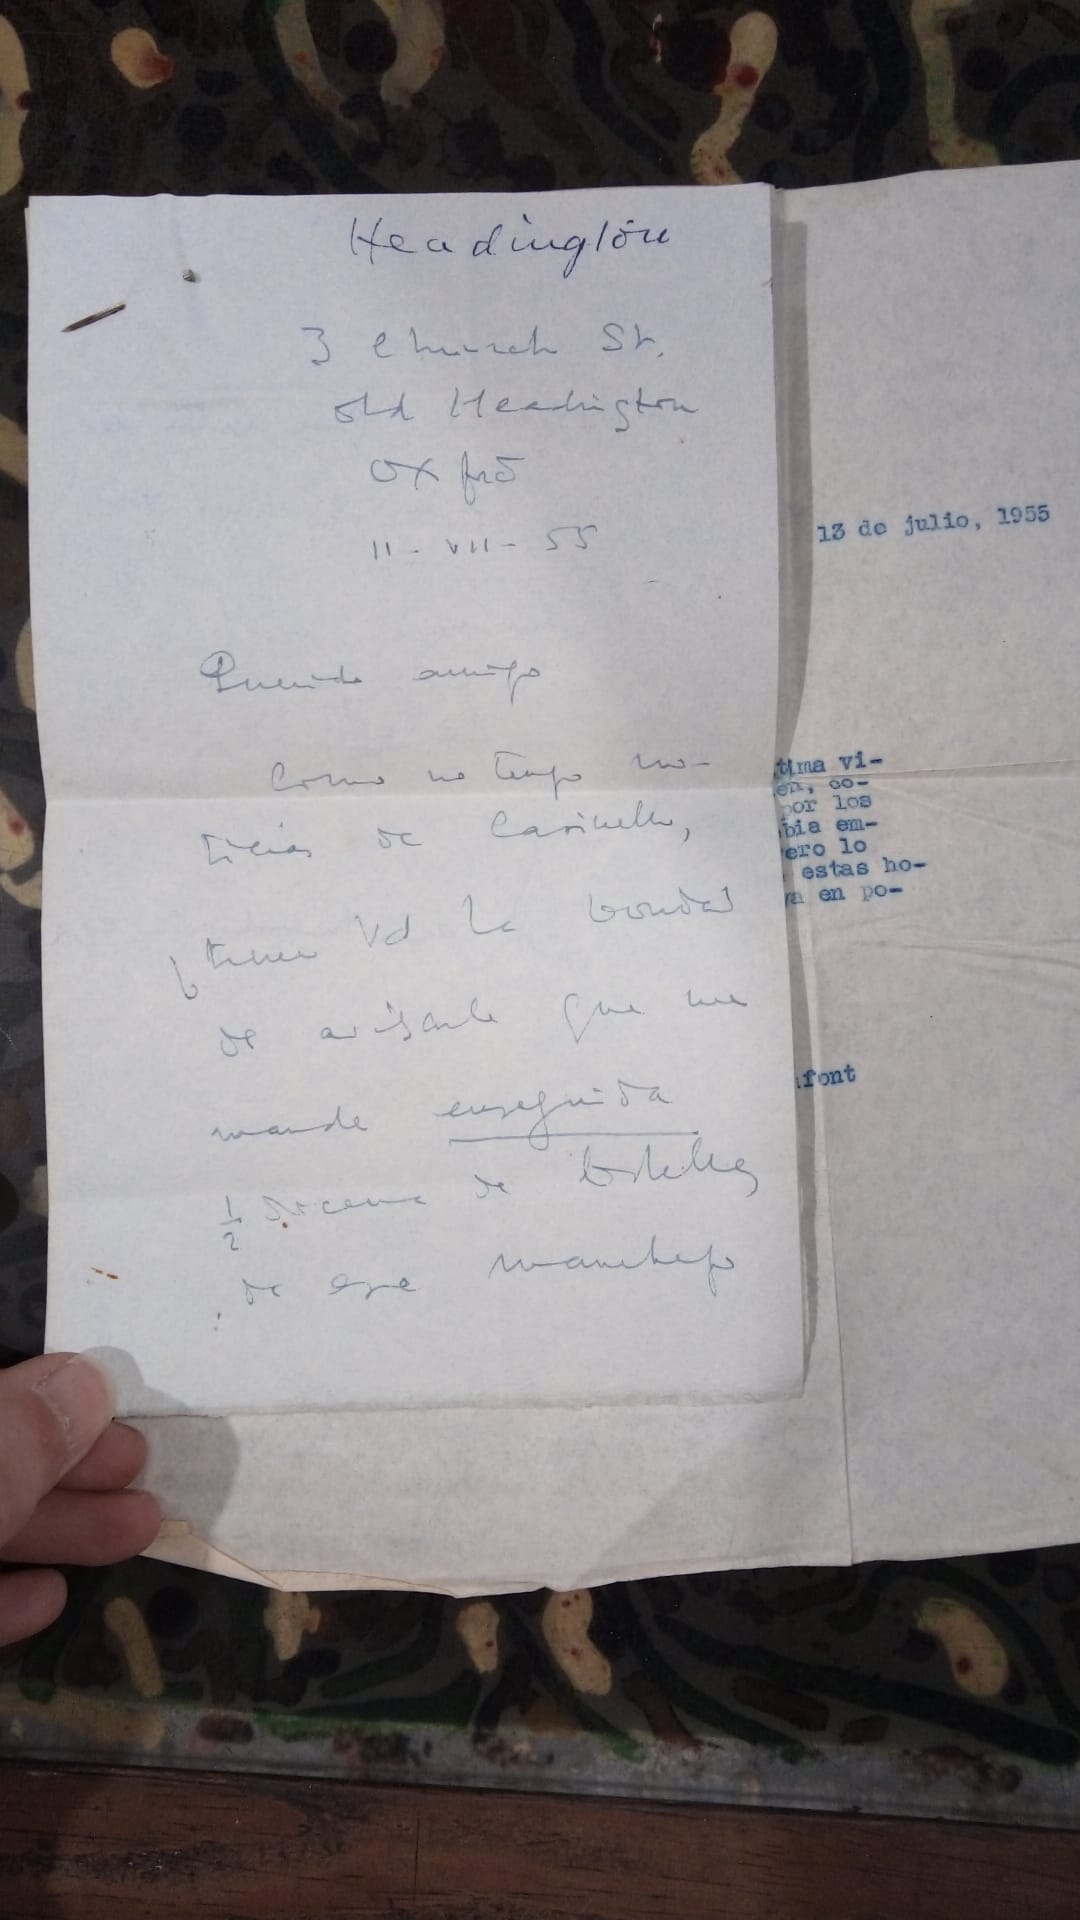 Headington
3 Church St.
Old Headington
Oxford
11-VII-55
Querido amigo
Como no tengo no-
ticias de Casinello,
¿tiene Vd la bondad
de avisarle que me
mande enseguida
1/2 docena de botellas
de ese manchego
13 de julio, 1955
tima vi-
en, co-
por los
bia em-
ero lo
estas ho-
ya en po-
font